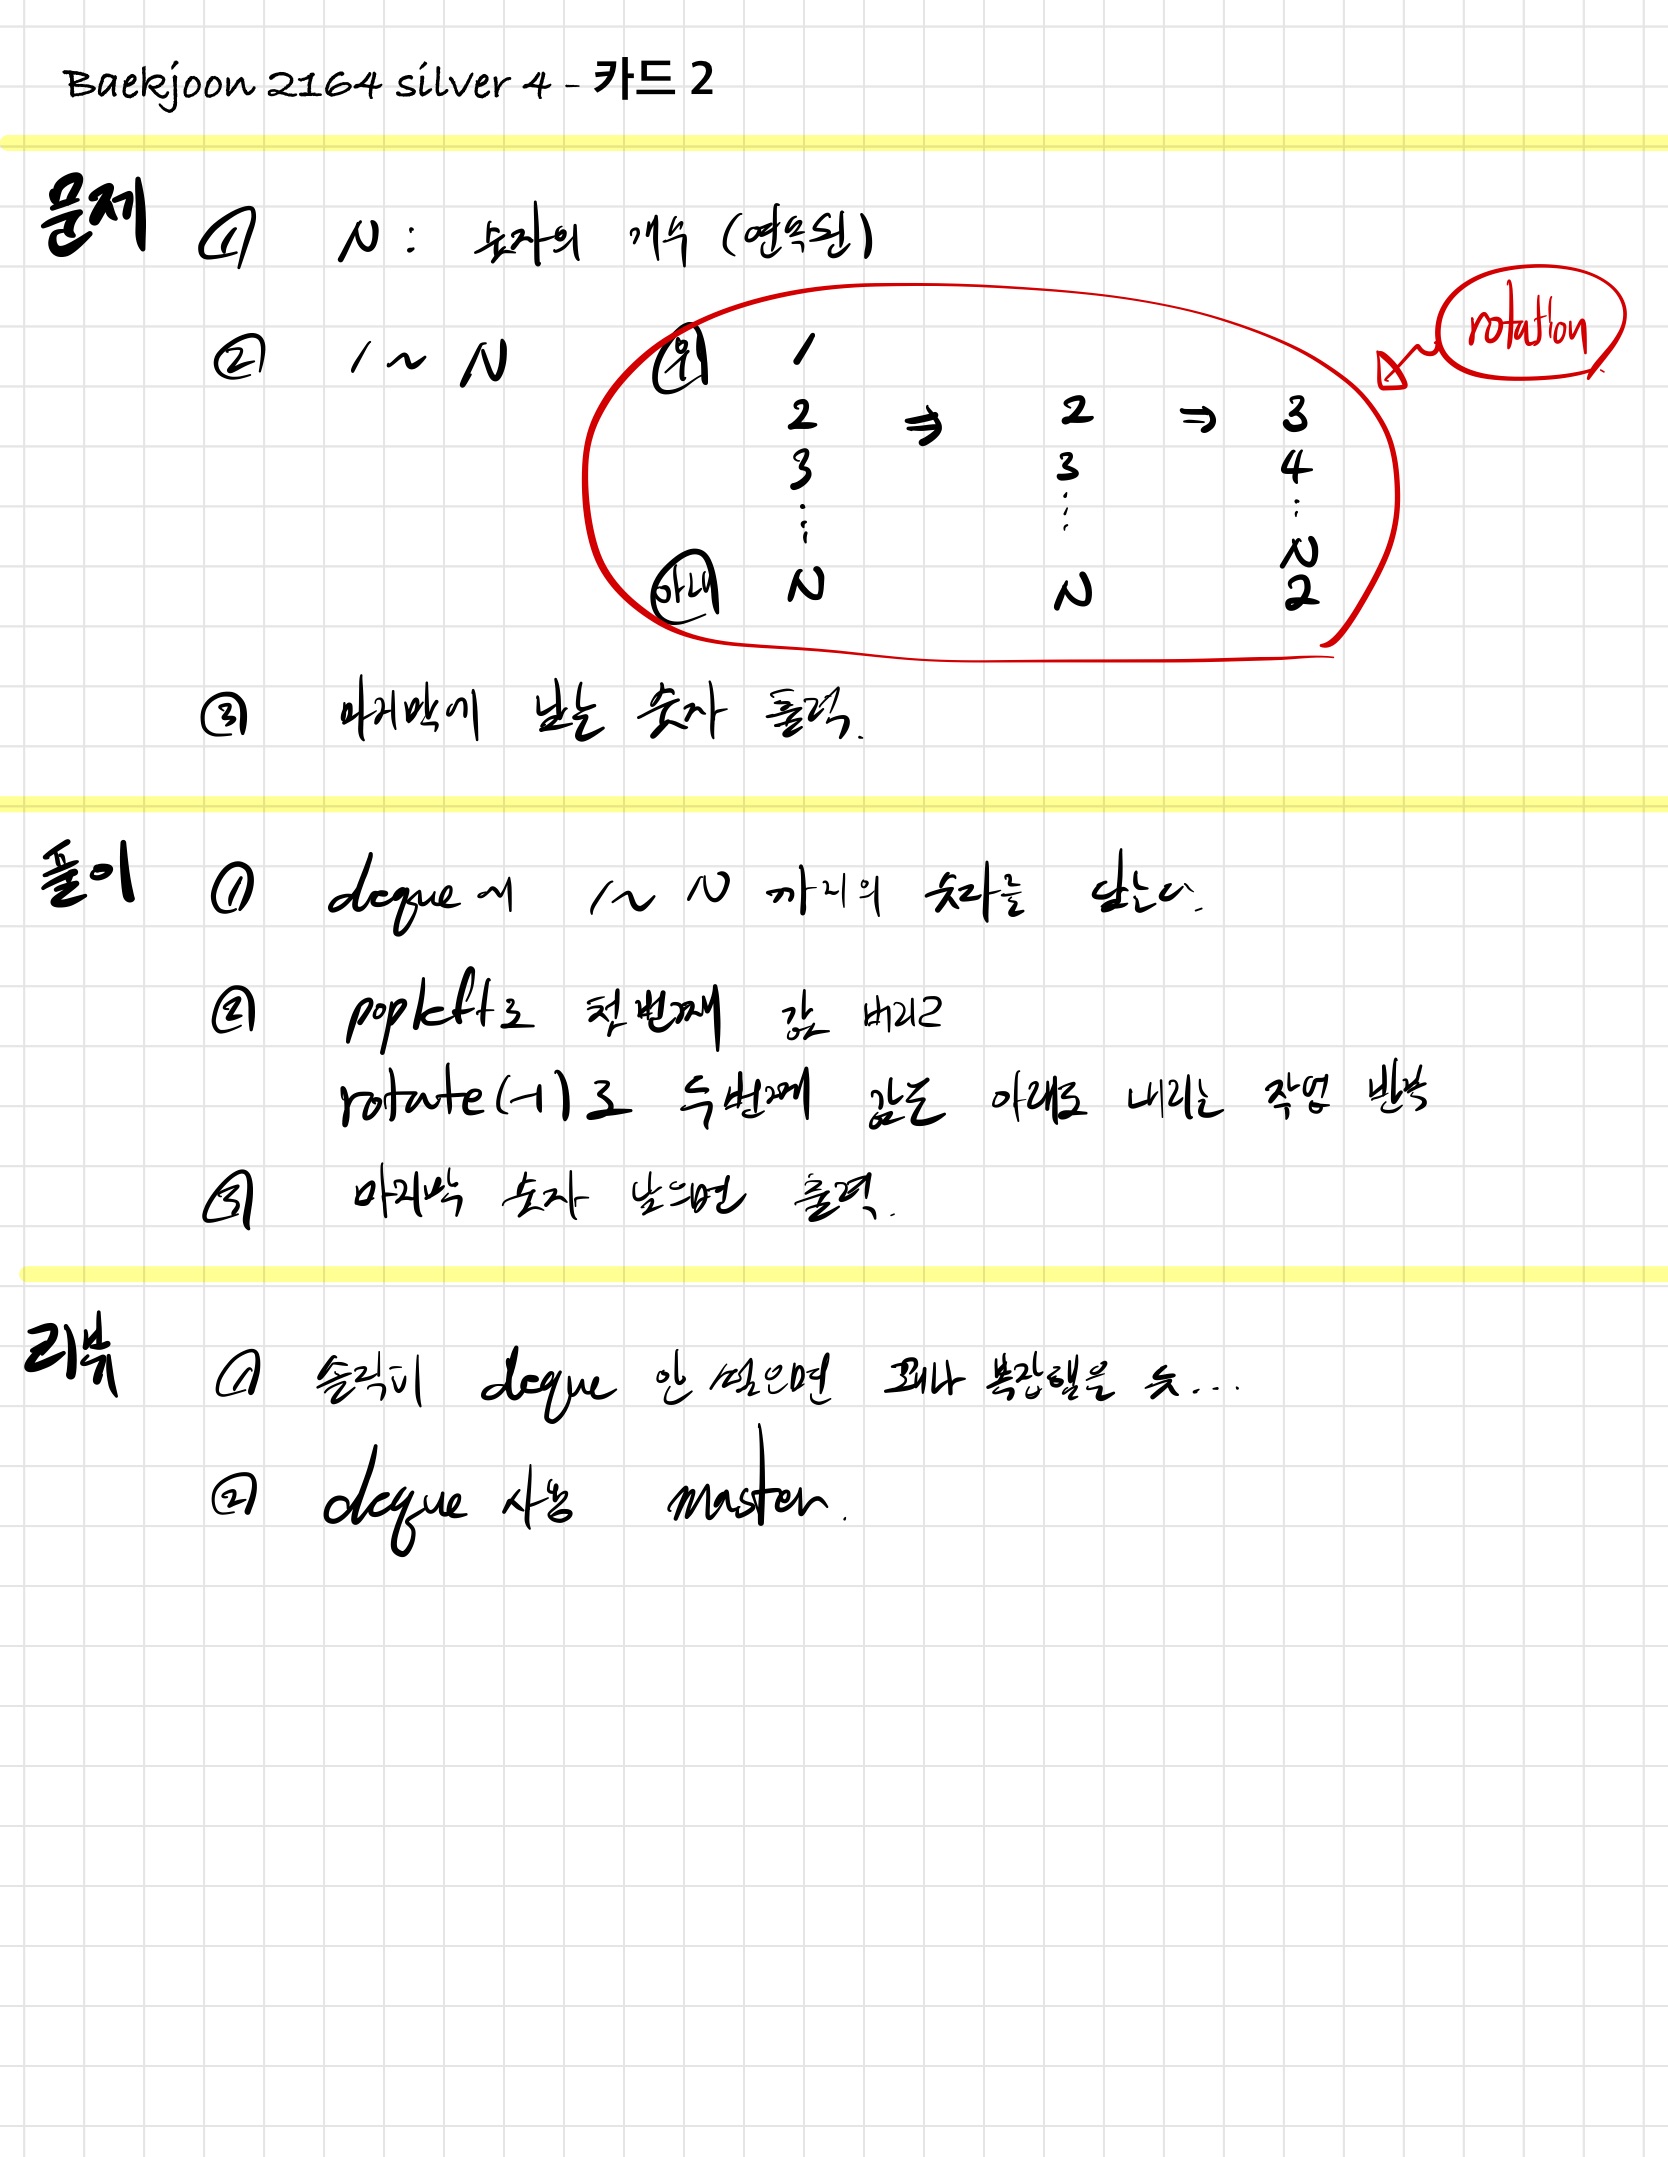 Baekjoon 2164 silver 4 - 카드 2
문제 ① N : 숫자의 개수 (연속된)
② 1 ~ N
rotation
위 1
2 ⇒ 2 ⇒ 3
3 3 4
⋮ ⋮ ⋮
N
아래 N N 2
③ 마지막에 남는 숫자 출력.
풀이 ① deque에 1 ~ N 까지의 숫자를 담는다.
② popleft로 첫 번째 값 버리고
rotate(-1)로 두번째 값은 아래로 내리는 작업 반복
③ 마지막 숫자 남으면 출력.
리뷰 ① 솔직히 deque 안 썼으면 꽤나 복잡했을 듯...
② deque 사용 master.